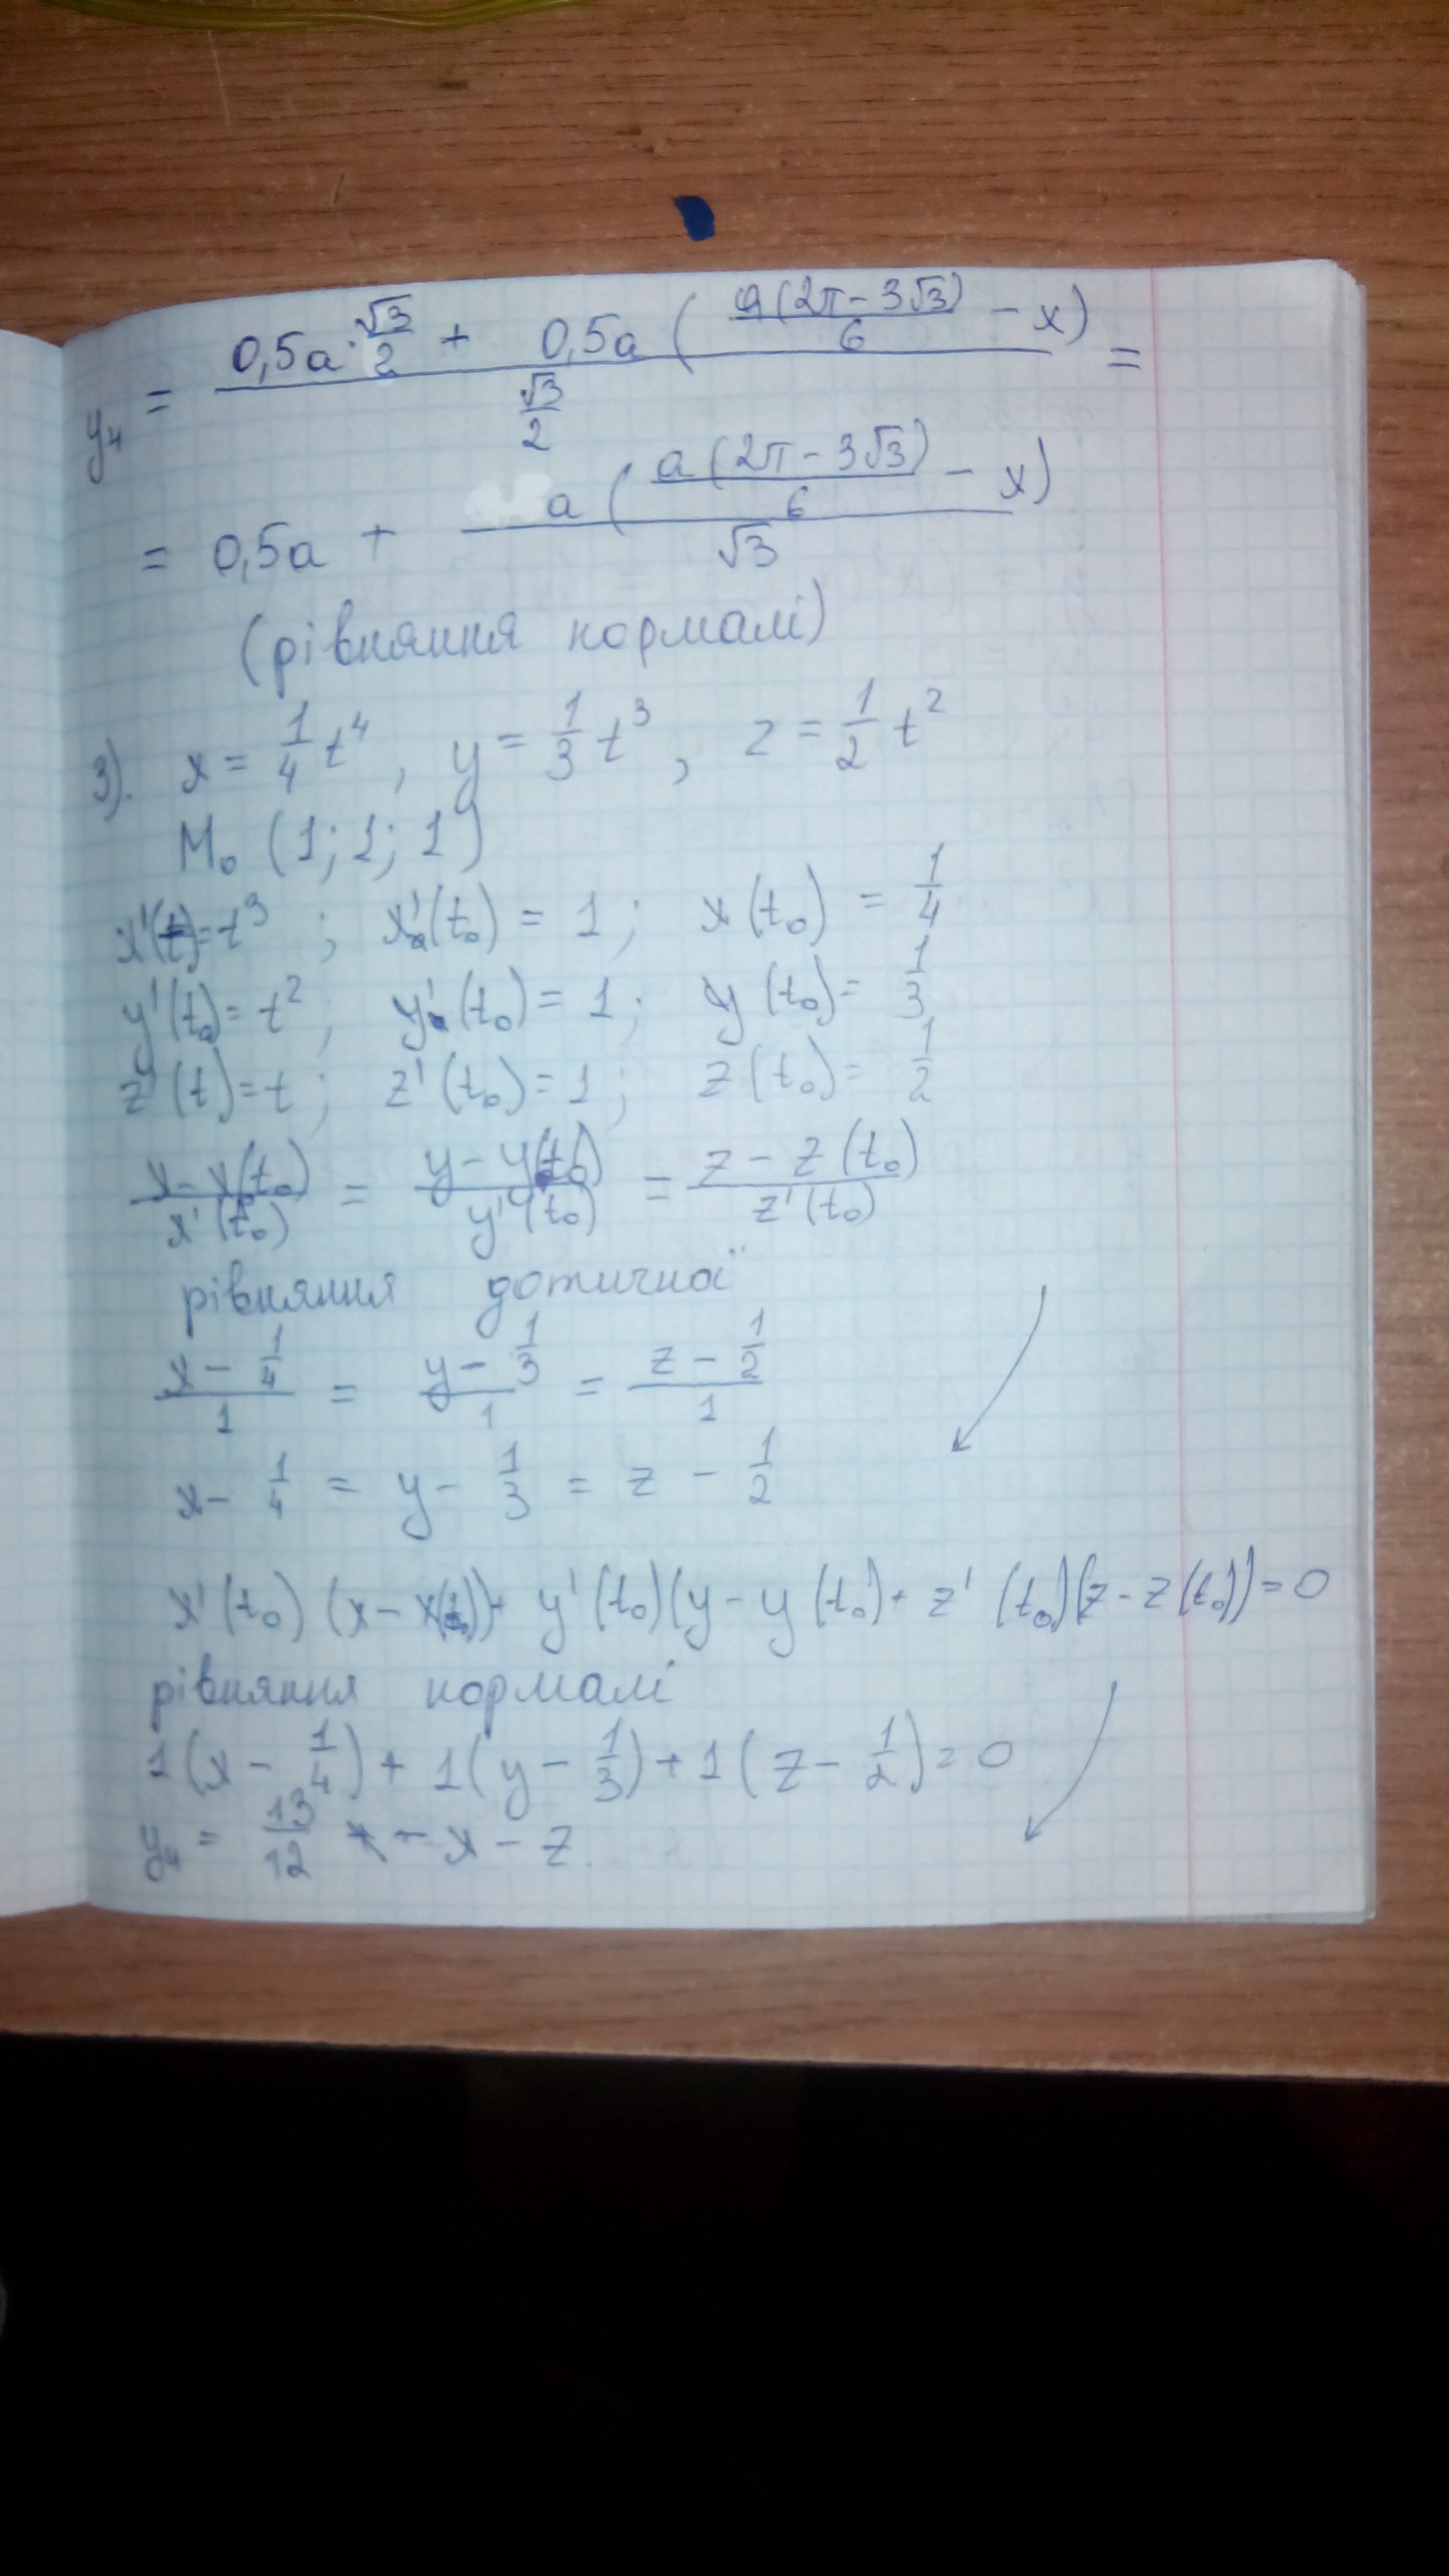 y₄ = (0,5a·√3/2 + 0,5a(a(2π−3√3)/6 − x))/(√3/2) =
= 0,5a + a(a(2π−3√3)/6 − x)/√3
(рівняння нормалі)
3). x = 1/4 t⁴, y = 1/3 t³, z = 1/2 t²
M₀ (1; 1; 1)
x'(t) = t³; x'(t₀) = 1; x(t₀) = 1/4
y'(t₀) = t²; y'(t₀) = 1; y(t₀) = 1/3
z'(t) = t; z'(t₀) = 1; z(t₀) = 1/2
(x − x(t₀))/x'(t₀) = (y − y(t₀))/y'(t₀) = (z − z(t₀))/z'(t₀)
рівняння дотичної
(x − 1/4)/1 = (y − 1/3)/1 = (z − 1/2)/1
x − 1/4 = y − 1/3 = z − 1/2
x'(t₀)(x − x(t₀)) + y'(t₀)(y − y(t₀) + z'(t₀)(z − z(t₀)) = 0
рівняння нормалі
1(x − 1/4) + 1(y − 1/3) + 1(z − 1/2) = 0
y₄ = 13/12 − x − z.